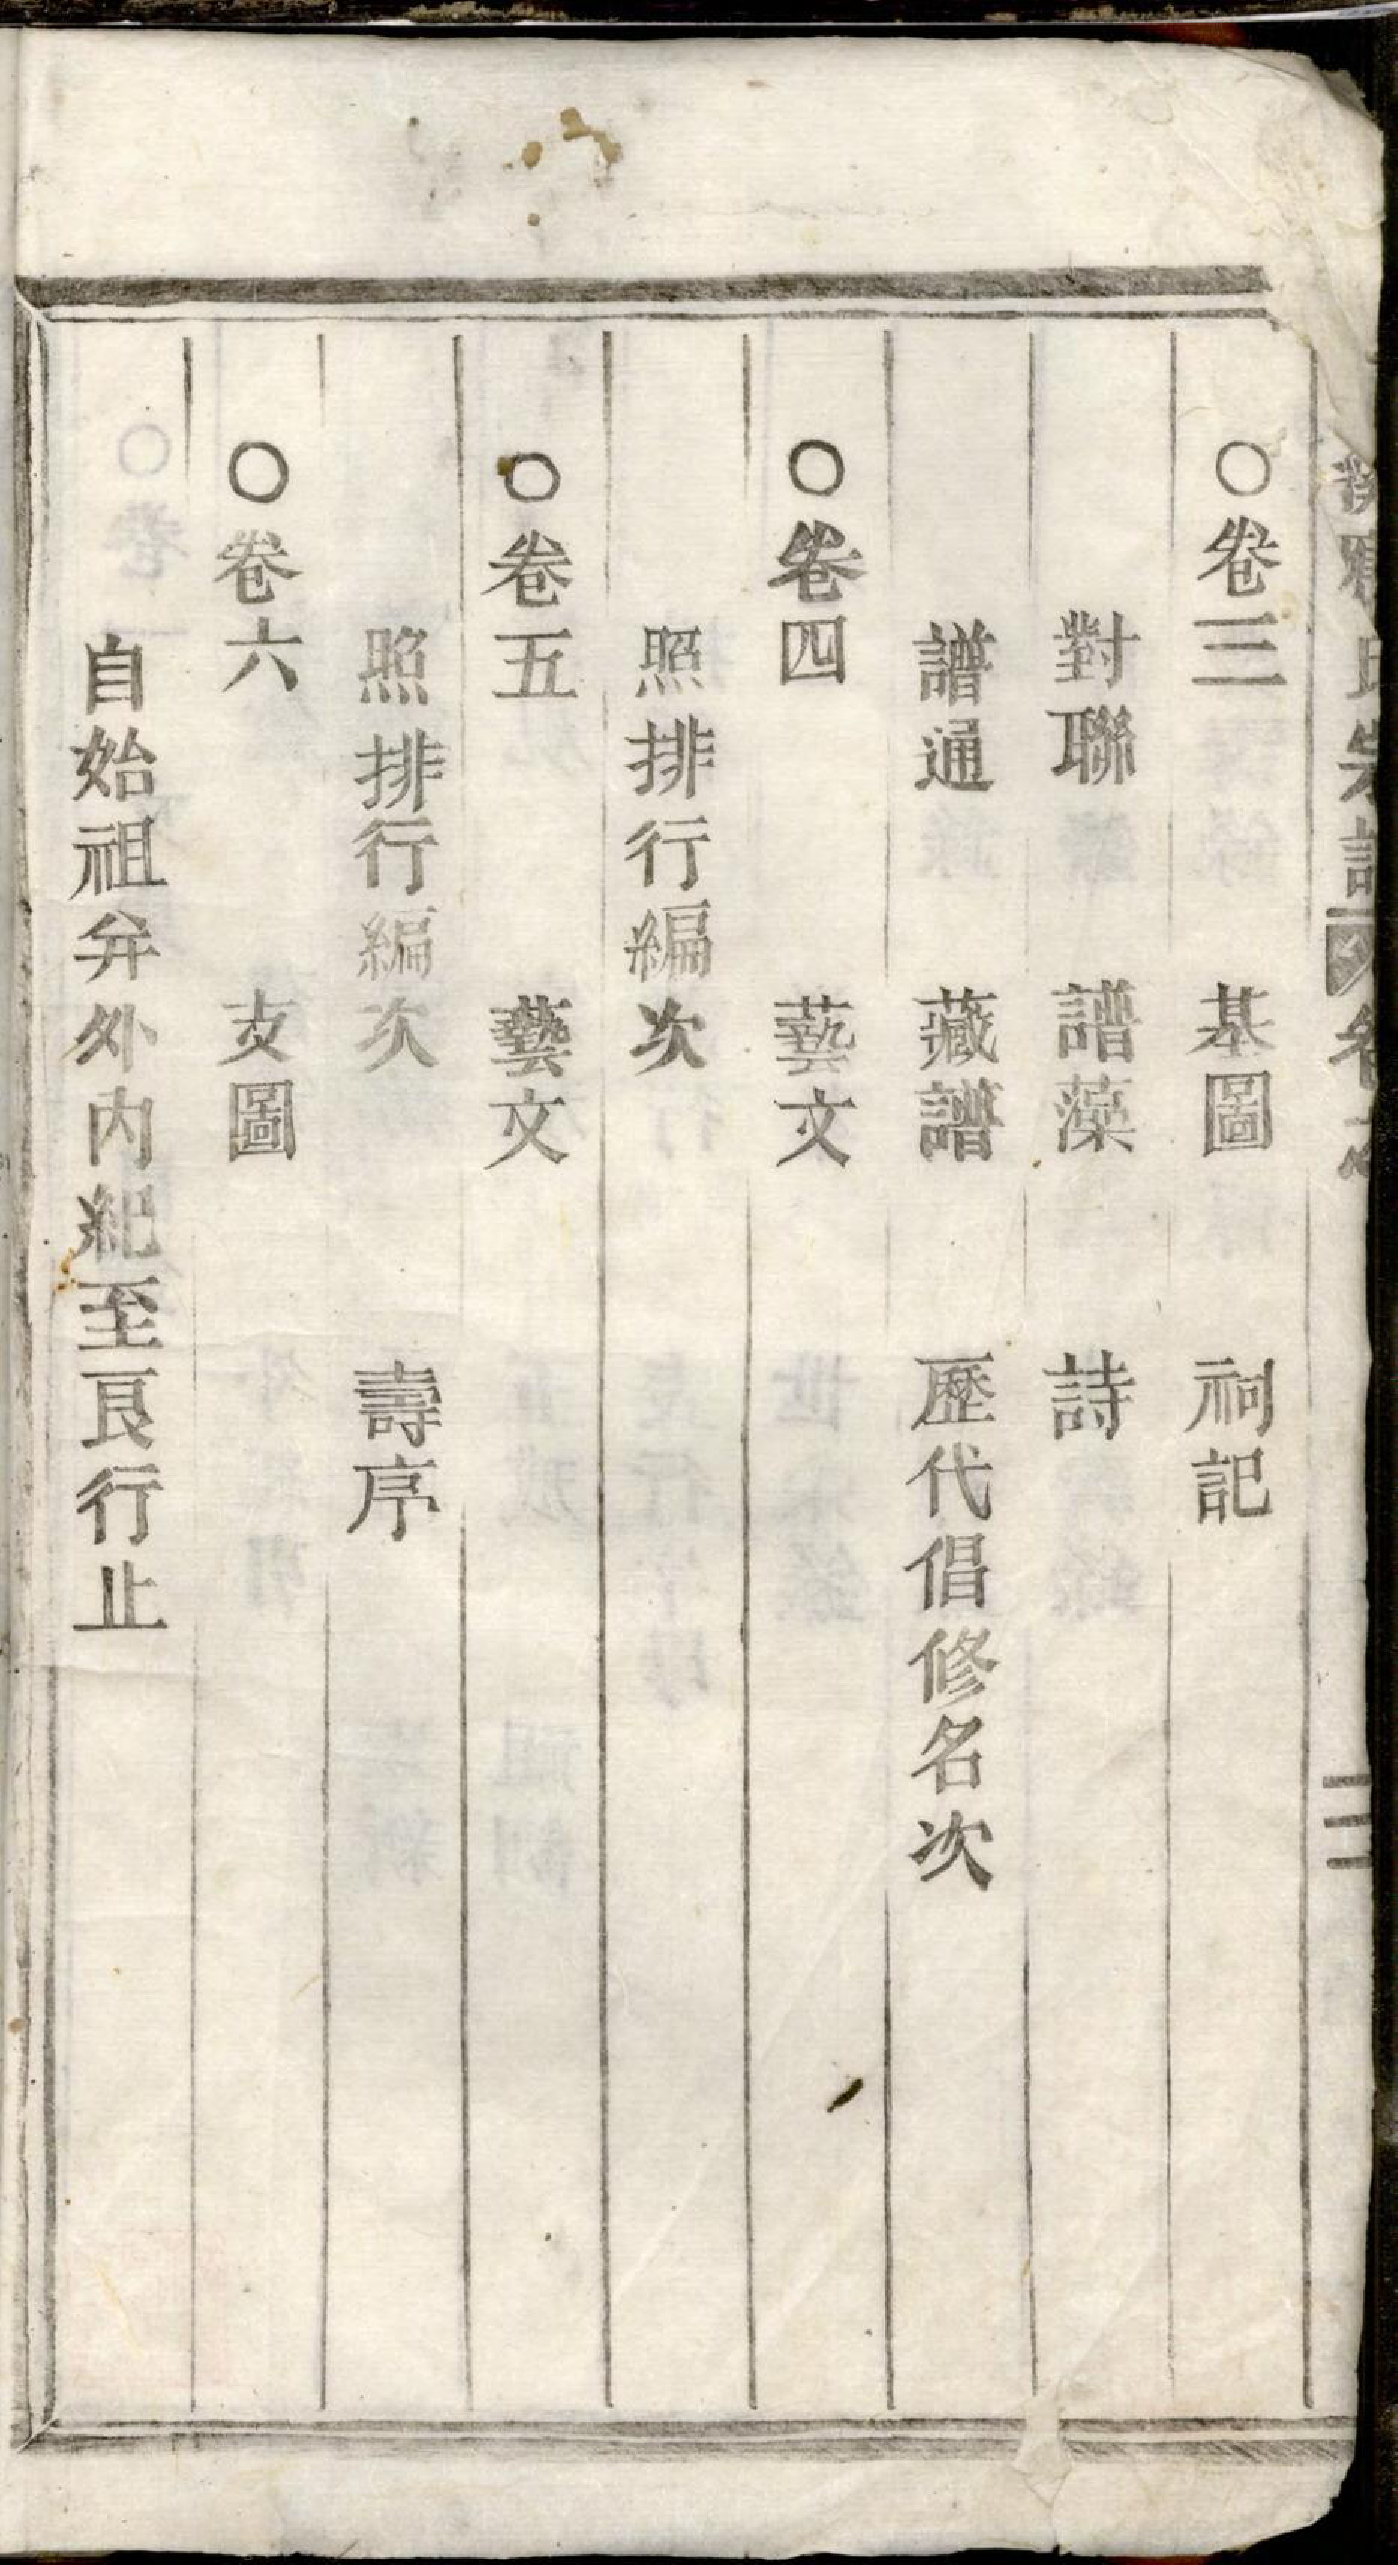 氏宗譜 卷 二
○卷三 基圖 祠記
對聯 譜藻 詩
譜通 藏譜 歷代倡修名次
○卷四 藝文
照排行編次
○卷五 藝文
照排行編次 壽序
○卷六 支圖
自始祖弁外內紀至艮行止